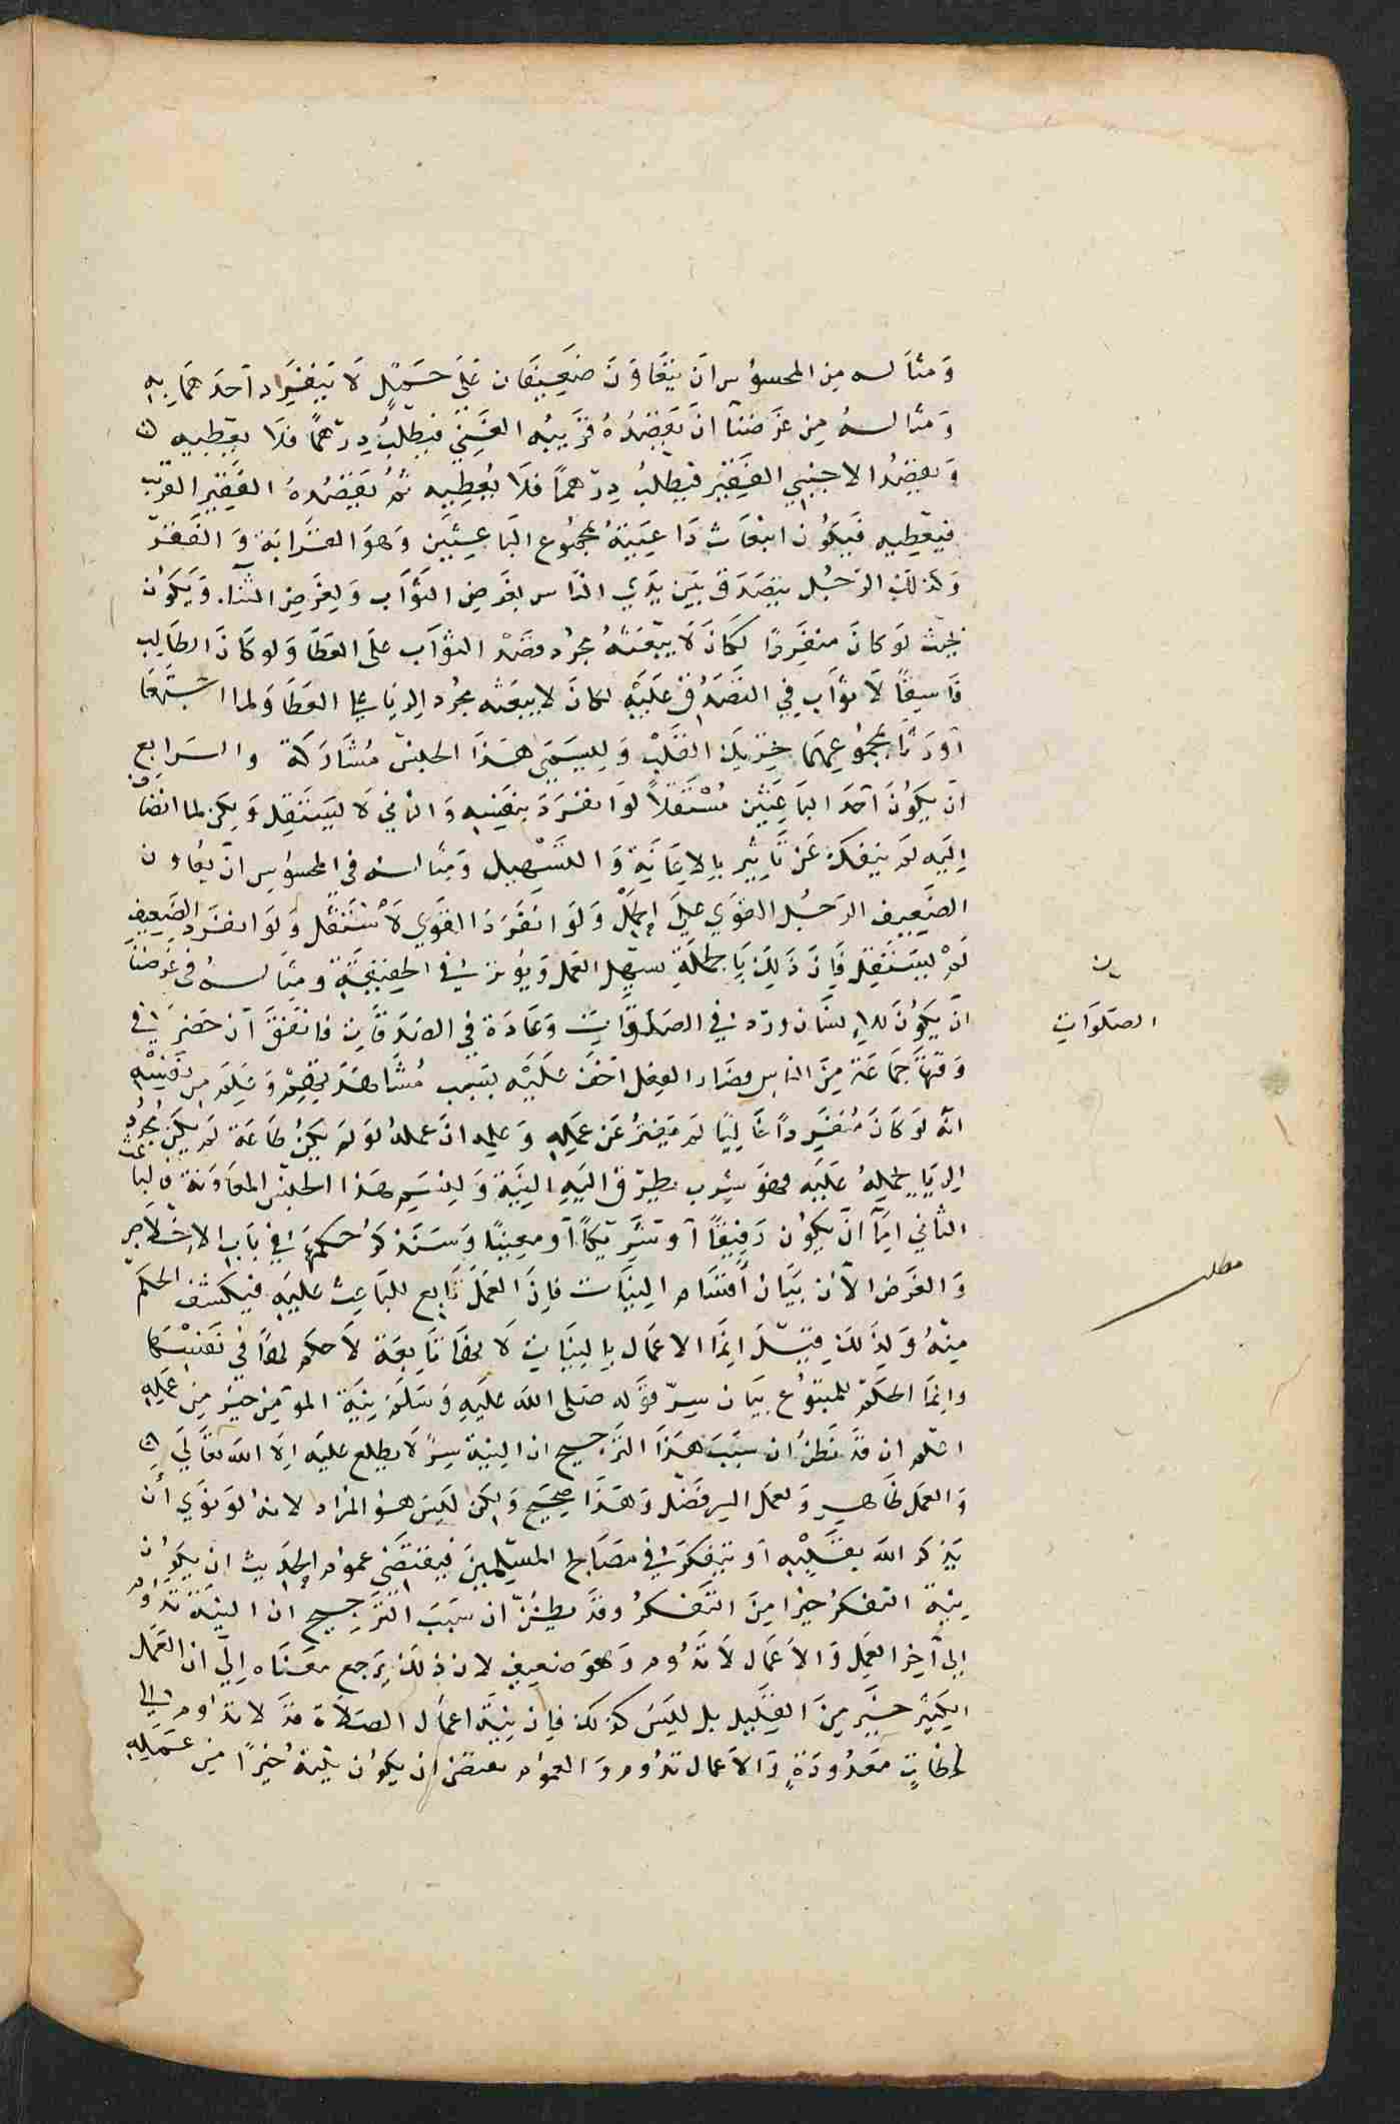 ومثاله من المحسوس ان يتعاون ضعيفان على حمل لا ينفرد احدهما به
ومثاله من غرضنا ان يقصده قريبه الغني فيطلب درهما فلا يعطيه
ويقصد الاجنبي الفقير فيطلب درهما فلا يعطيه ثم يقصده الفقير القريب
فيعطيه فيكون انبعاث داعيته بمجموع الباعثين وهو القرابة والفقر
وكذلك الرجل يتصدق بين يدي الناس لغرض الثواب ولغرض الثناء ويكون
بحيث لو كان منفردا لكان لا يبعثه مجرد قصد الثواب على العطا ولو كان الطالب
فاسقا لا ثواب في التصدق عليه لكان لا يبعثه مجرد الريا على العطا ولما اجتمعا
اورثا بمجموعهما تحريك القلب وليسمى هذا الجنس مشاركة والرابع
ان يكون احد الباعثين مستقلا لو انفرد بنفسه والثاني لا يستقل ولكن لما انضاف
اليه لم ينفك عن تاثير بالاعانة والتسهيل ومثاله في المحسوس ان يعاون
الضعيف الرجل القوي على الحمل ولو انفرد القوي لاستقل ولو انفرد الضعيف
لم يستقل فان ذلك بالجملة يسهل العمل ويؤثر في تخفيفه ومثاله في غرضنا
ان يكون للانسان ورد في الصلوات وعادة في الصدقات فاتفق ان حضر في
وقتها جماعة من الناس فصار الفعل اخف عليه بسبب مشاهدتهم وعلم من نفسه
انه لو كان منفردا خاليا لم يفتر عن عمله وعلم ان عمله لو لم يكن طاعة لم يكن مجرد
الريا يحمله عليه فهو شوب تطرق الي النية وليسم هذا الجنس المعاونة فالباعث
الثاني اما ان يكون رفيقا او شريكا او معينا وسنذكر حكمها في باب الاخلاص
والغرض الان بيان اقسام النيات فان العمل تابع للباعث عليه فيكتسب الحكم
منه ولذلك قيل انما الاعمال بالنيات لانها تابعة لا حكم لها في نفسها
وانما الحكم للمتبوع بيان سر قوله صلى الله عليه وسلم نية المؤمن خير من عمله
اعلم ان قد تظن ان سبب هذا الترجيح ان النية سر لا يطلع عليه الا الله تعالى
والعمل ظاهر ولعمل السر فضل وهذا صحيح ولكن ليس هو المراد لانه لو نوى ان
يذكر الله بقلبه او يتفكر في مصالح المسلمين فيقتضي عموم الحديث ان يكون
نية التفكر خيرا من التفكر وقد يظن ان سبب الترجيح ان النية تدوم
الى آخر العمل والاعمال لا تدوم وهو ضعيف لان ذلك يرجع معناه الى ان العمل
الكثير خير من القليل بل ليس كذلك فان نية اعمال الصلاة قد لا تدوم الا في
لحظات معدودة والاعمال تدوم والعموم يقتضى ان يكون نيته خيرا من عمله
ن
الصلوات
مطلب